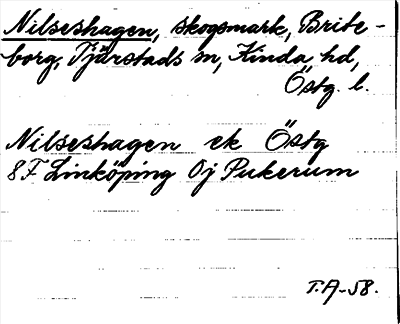 Nilseshagen, skogsmark, Brite-
borg, Tjärstads sn, Kinda hd,
Östg. l.
Nilseshagen ek Östg
8F Linköping 0j Pukerum
T.A-58.